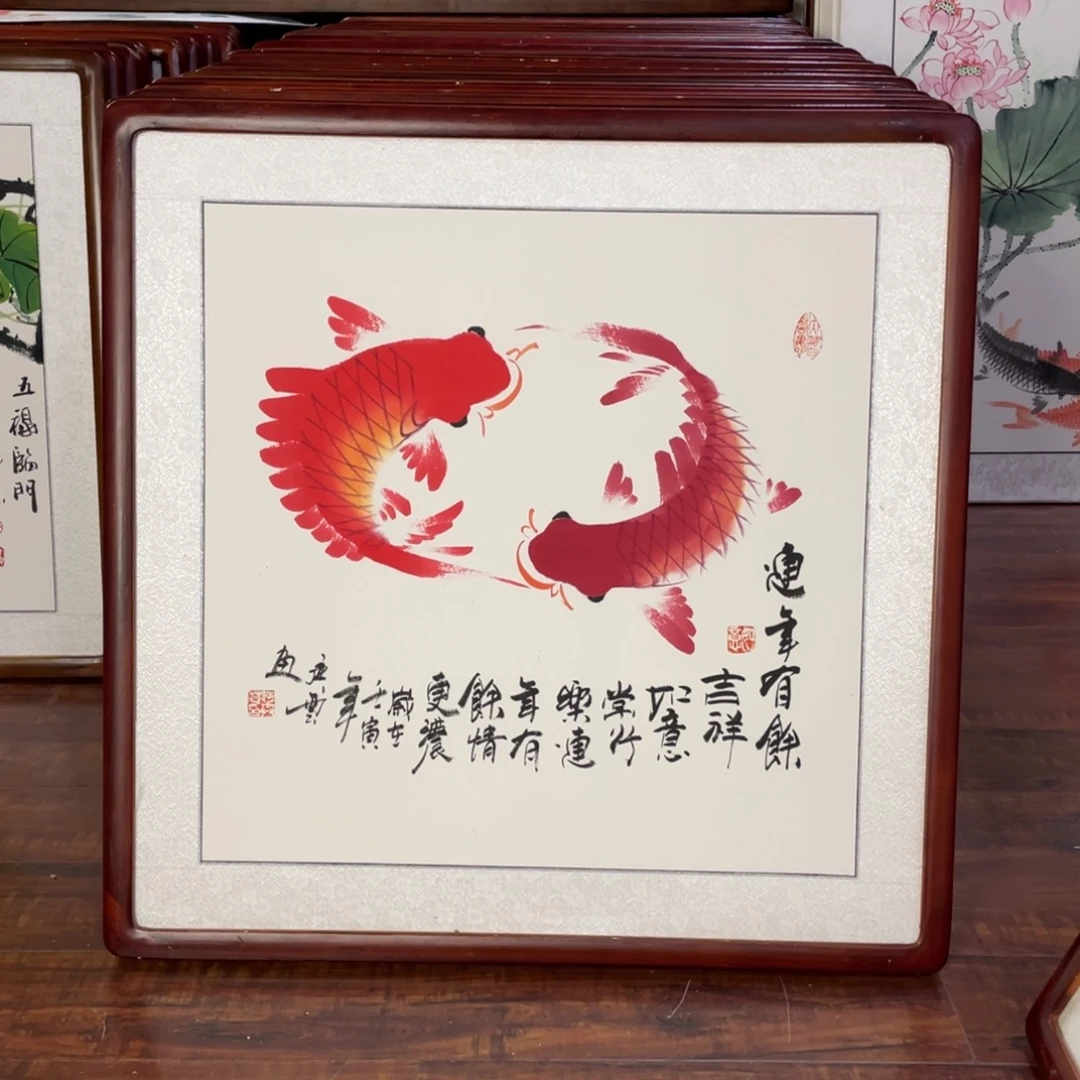 連年有餘
吉祥
如意
常行
樂連
年有
餘情
更濃
歲在
壬寅
年
五福臨門